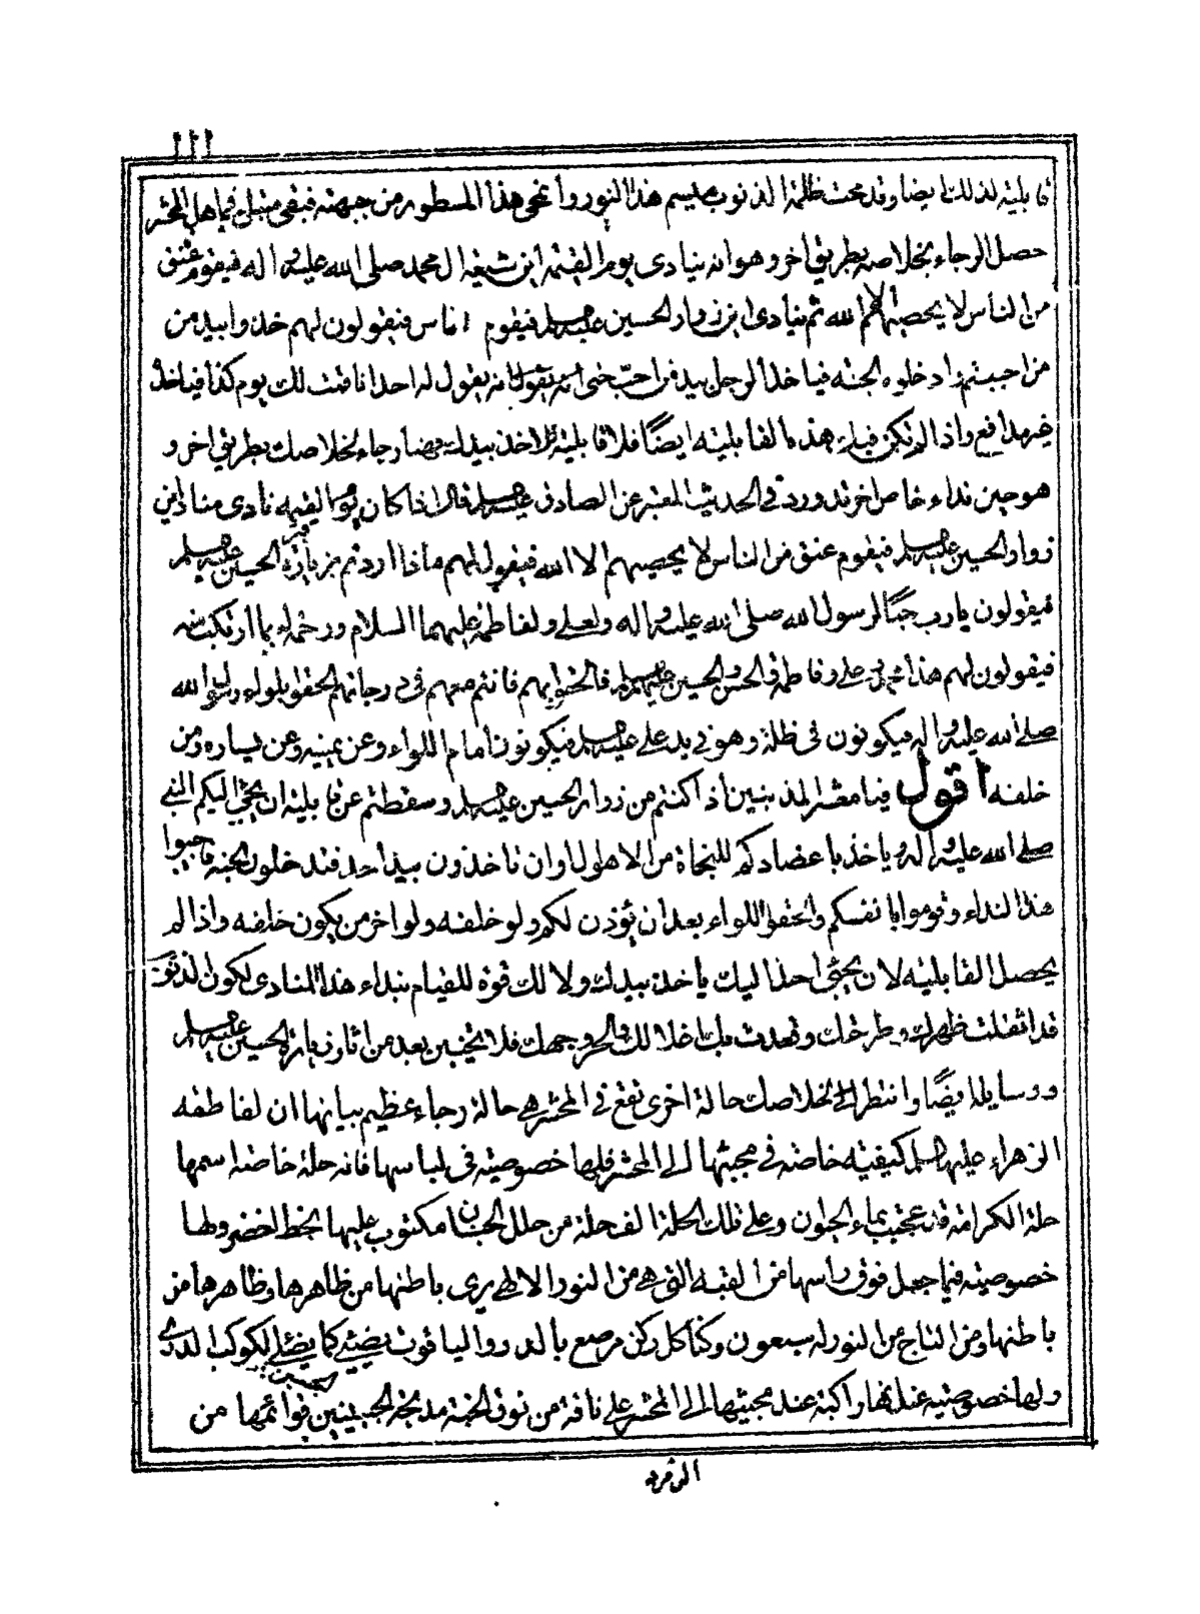 ١١١
قابلية لذلك ايضا وقد محت ظلمة الذنوب ميسم هذا النور وانمحى هذا المسطور من جبهته فبقى متبلى فيما هل المحشر
حصل الرجاء بخلاصه بطريق اخر وهو انه ينادى يوم القيمة اين شيعة ال محمد صلى الله عليه واله فيقوم عنق
من الناس لا يحصيهم الا الله ثم ينادى اين زوار الحسين عليه السلام فيقوم اناس فيقولون لهم خذوا بيد من
من احببتم وادخلوه الجنة فياخذ الرجل بيد من احب حتى انه يقول له احد انا قمت لك يوم كذا فياخذ
غير مدافع واذا لم تكن فيك هذه القابلية ايضًا فلا قابلية للاخذ بيدك فهنا رجاء لخلاصك بطريق اخر و
هو حين نداء خاص اخر قد ورد في الحديث المعتبر عن الصادق عليه السلام قال اذا كان يوم القيمة نادى مناد اين
زوار الحسين عليه السلام فيقوم عنق من الناس لا يحصيهم الا الله فيقول لهم ماذا اردتم بزيارة قبر الحسين عليه السلام
فيقولون يا رب حبًا لرسول الله صلى الله عليه واله ولعلى ولفاطمة عليهما السلام ورحمة له بما ارتكب منه
فيقولون لهم هذا محمد وعلى وفاطمة والحسن والحسين عليهم السلام فالحقوا بهم فانتم معهم في درجاتهم الحقوا بلواء رسول الله
صلى الله عليه واله فيكونون في ظله وهو في يد على عليه السلام فيكونون امام اللواء وعن يمينه وعن يساره ومن
خلفه اقول فيا معشر المذنبين اذا كنتم من زوار الحسين عليه السلام وسقطتم عن قابلية ان يجئ اليكم النبى
صلى الله عليه واله وياخذ باعضادكم للنجاة من الاهوال وان تاخذون بيد احد فتدخلون الجنة فاجيبوا
هذا النداء وقوموا بانفسكم والحقوا اللواء بعد ان يؤذن لكم ولو خلفه ولو اخر من يكون خلفه واذا لم
يحصل القابلية لان يجئ احد اليك ياخذ بيدك ولا لك قوة للقيام بنداء هذا المنادى لكون الذنوب
قد اثقلت ظهرك وطرحتك وقعدت بك اغلالك وجهك فلا تخيبن بعد من اثار زيارة الحسين عليه السلام
ووسايله ايضًا وانتظر الى خلاصك حالة اخرى تقع في المحشر هي حالة رجاء عظيم بيانها ان لفاطمه
الزهراء عليها السلم كيفية خاصة في مجيئها الى المحشر فلها خصوصية في لباسها فانه حلة خاصة اسمها
حلة الكرامة قد عجنت بماء الحيوان وعلى تلك الحلة الف حلة من حلل الجنان مكتوب عليها بخط اخضر ولها
خصوصية فيما جعل فوق راسها من القبة التى هى من النور الالهى يرى باطنها من ظاهرها وظاهرها من
باطنها ومن التاج من النور له سبعون ركنا كل ركن مرصع بالدر والياقوت يضيئ كما يضئ الكوكب الدرى
ولها خصوصية عند انها راكبة عند مجيئها الى المحشر على ناقة من نوق الجنة مدبجة الجنبين قوائمها من
الزمرد